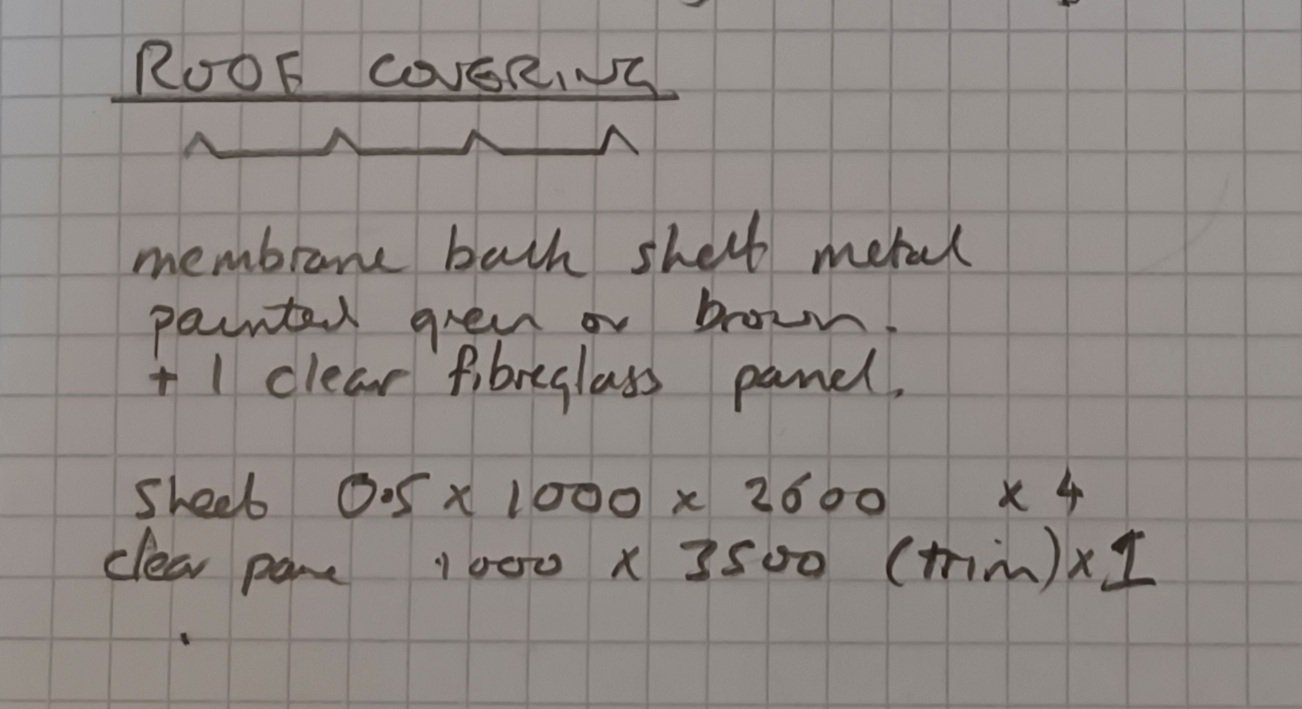 ROOF COVERING
membrane back sheet metal
painted green or brown.
+ 1 clear fibreglass panel.
sheet 0.5 x 1000 x 2600 x 4
clear pane 1000 x 3500 (trim) x 1